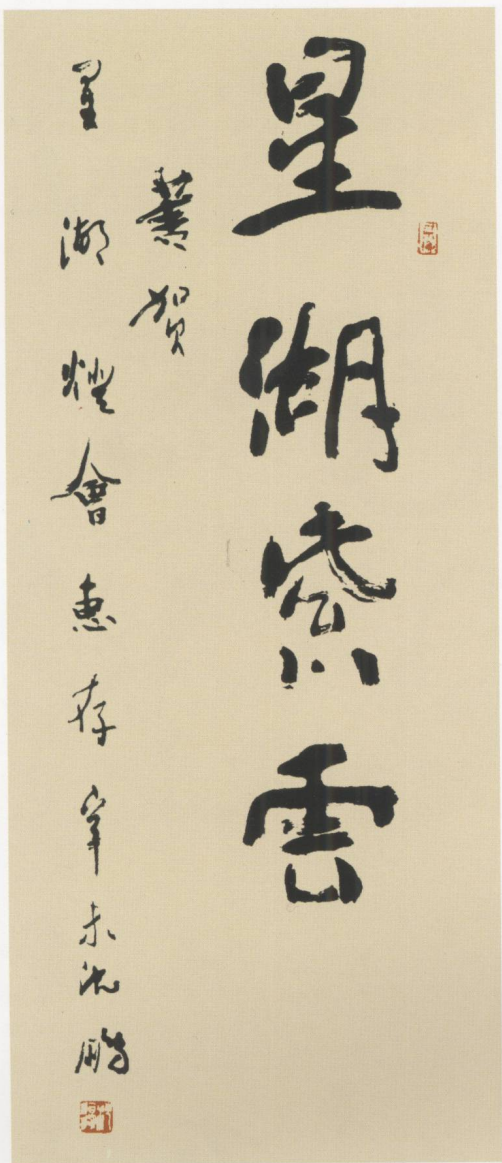 星湖紫雲
賀
星湖燈會惠存辛未沈鵬